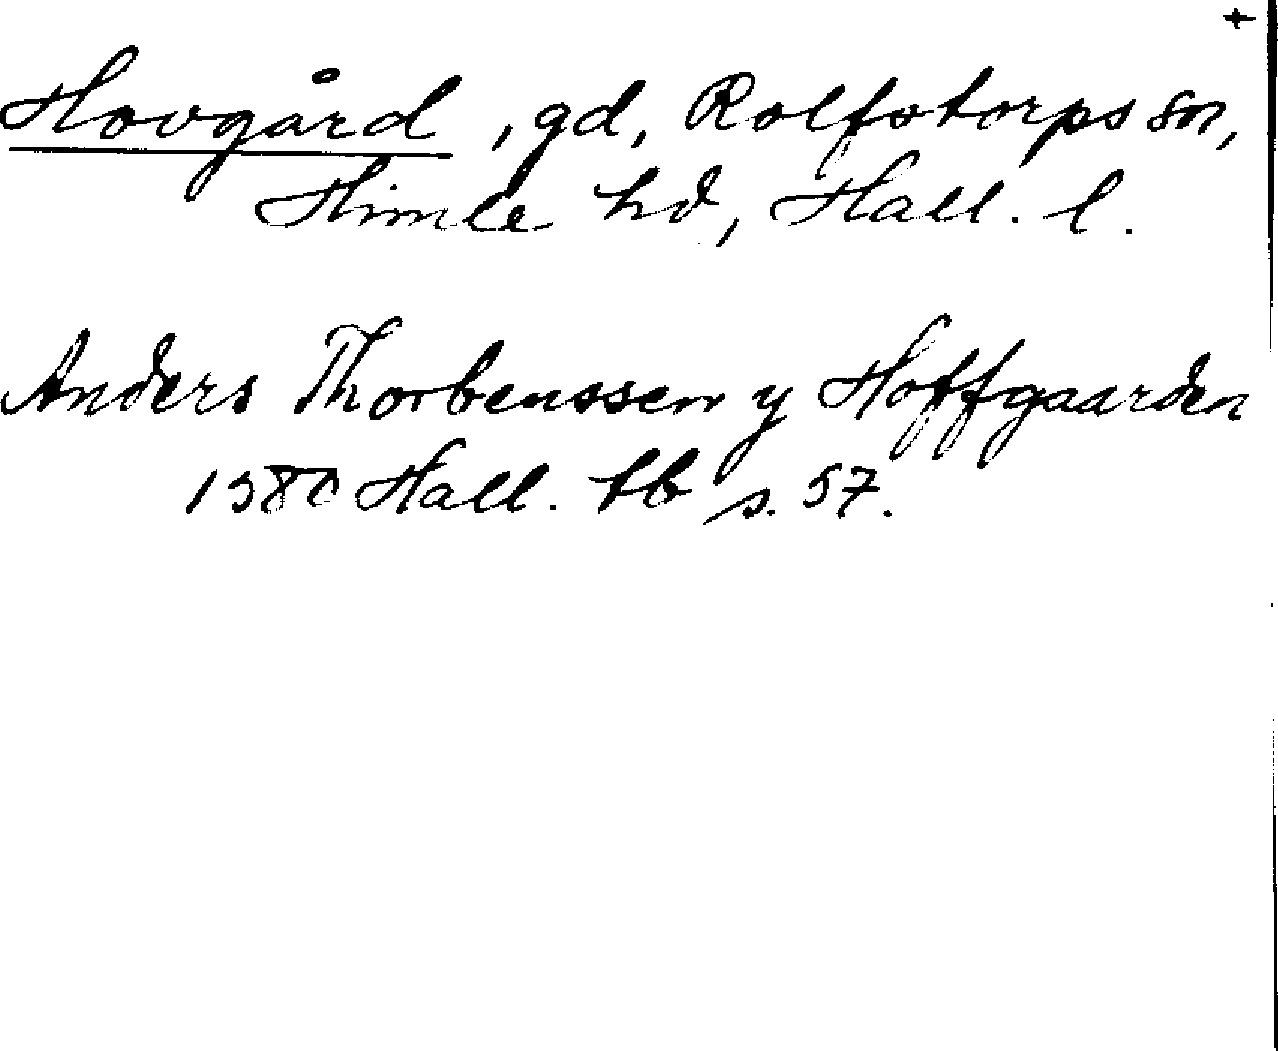 +
Hovgård, gd, Rolfstorps sn,
Himle hd, Hall. l.
Anders Thorbenssen y Hoffgaarden
1580 Hall. tb s. 57.